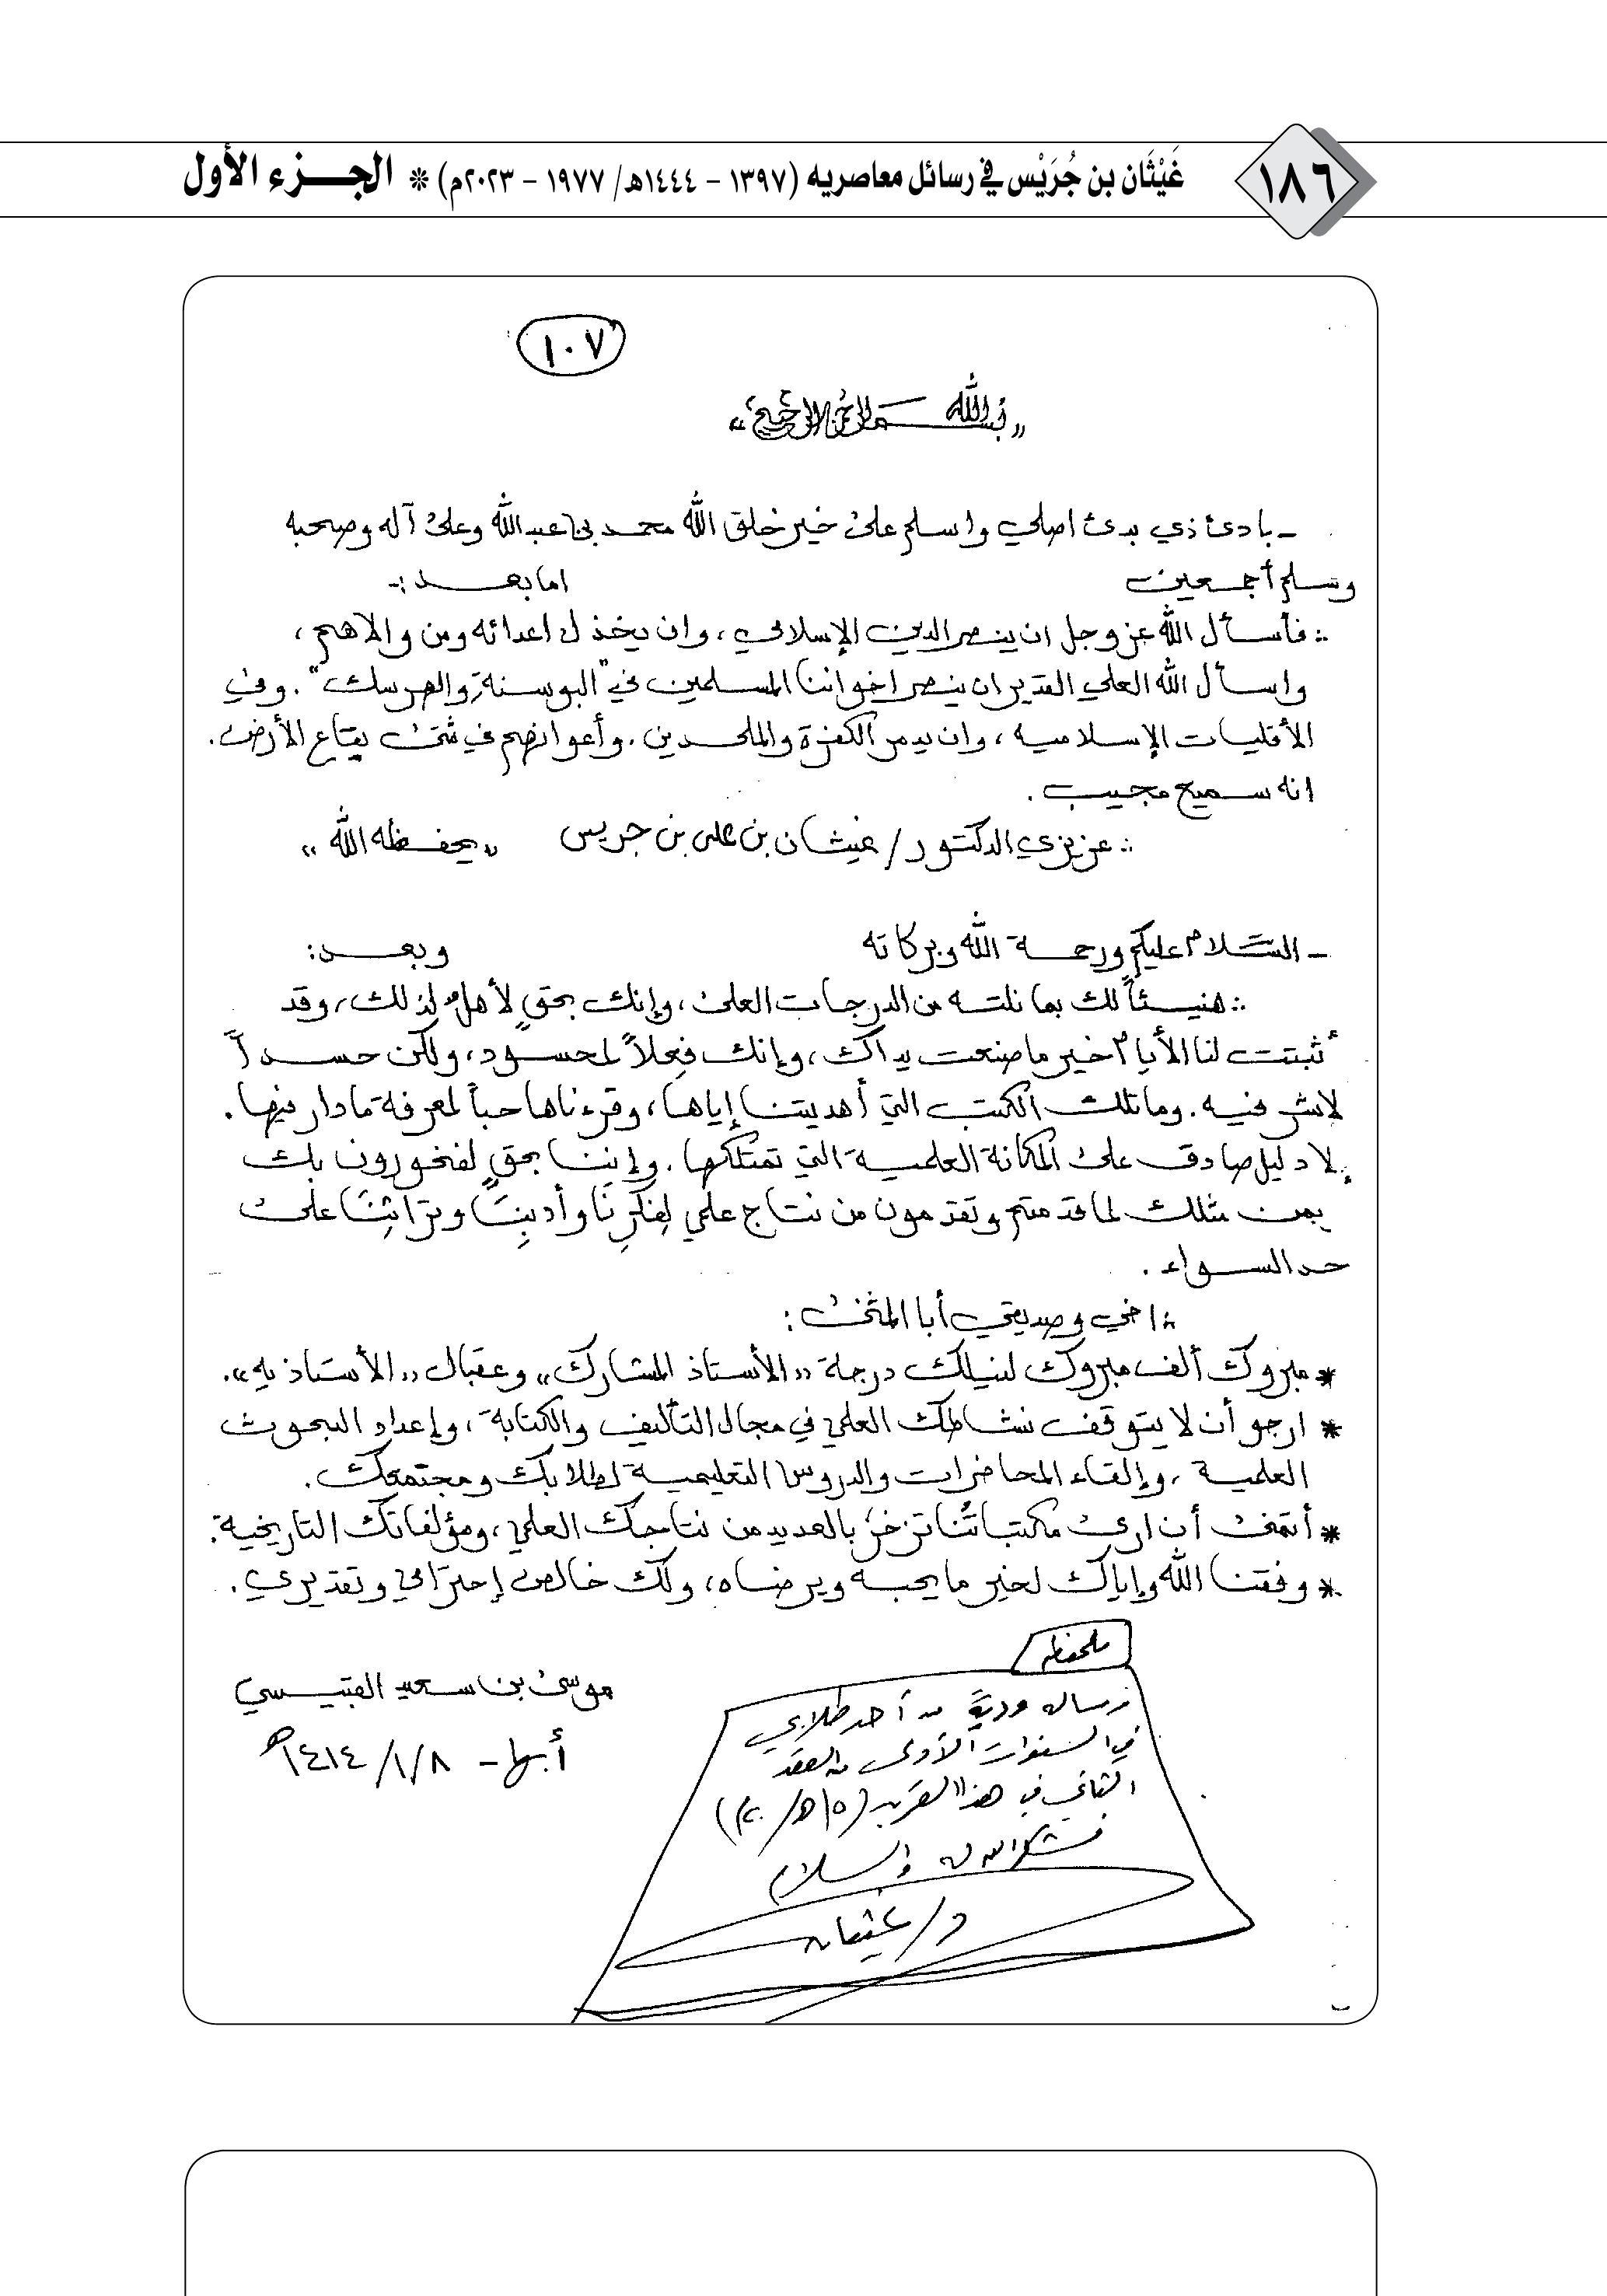 ١٨٦
غَيْثَان بن جُرَيْس في رسائل معاصريه (١٣٩٧ - ١٤٤٤هـ/ ١٩٧٧ - ٢٠٢٣م) * الجزء الأول
١٠٧
«بسم الله الرحمن الرحيم»
- بادئ ذي بدئ اصلي واسلم على خير خلق الله محمد بن عبدالله وعلى آله وصحبه
وسلم أجمعين اما بعد :-
فأسأل الله عز وجل ان ينصر الدين الإسلامي، وان يخذل اعدائه ومن والاهم،
واسأل الله العلي القدير ان ينصر اخواننا المسلمين في "البوسنة والهرسك". وفي
الأقليات الإسلامية، وان يدمر الكفرة والملحدين. وأعوانهم في شتى بقاع الأرض.
انه سميع مجيب.
عزيزي الدكتور/ غيثان بن علي بن جريس «يحفظه الله»
- السَّلام عليكم ورحمة الله وبركاته وبعد:
هنيئاً لك بما نلته من الدرجات العلى، وإنك بحقٍ لأهلٌ لذلك، وقد
أثبتت لنا الأيام خير ما صنعت يداك، وإنك فِعلاً لمحسود، ولكن حسداً
لاشر فيه. وما تلك الكتب التي أهديتنا إياها، وقرءناها حباً لمعرفة ما دار فيها.
إلا دليل صادق على المكانة العلمية التي تمتلكها. وإننا بحقٍ لفخورون بك
بمن مثلك لما قدمتم وتقدمون من نتاج علمي لِفكْرِنَا وأدبِنَا وتراثِنَا على
حد السواء.
اخي وصديقي أبا المثنى:
* مبروك ألف مبروك لنيلك درجة «الأستاذ المشارك» وعقبال «الأستاذيه».
* ارجو أن لا يتوقف نشاطك العلمي في مجال التأليف والكتابة، وإعداد البحوث
العلمية، وإلقاء المحاضرات والدروس التعليمية لطلابك ومجتمعك.
* أتمنى أن ارى مكتباتُنا تزخرُ بالعديد من نتاجك العلمي، ومؤلفاتك التاريخية.
* وفقنا الله وإياك لخير ما يحبه ويرضاه، ولك خالص إحترامي وتقديري.
موسى بن سعيد القيسي
أبها - ١٤١٤/١/٨هـ
ملحوظه
رساله وديةً من أحد طلابي
في السنوات الأولى من العقد
الثاني في هذا القرن (١٥هـ/٢٠م)
فشكر الله له والسلام
د/ غيثان